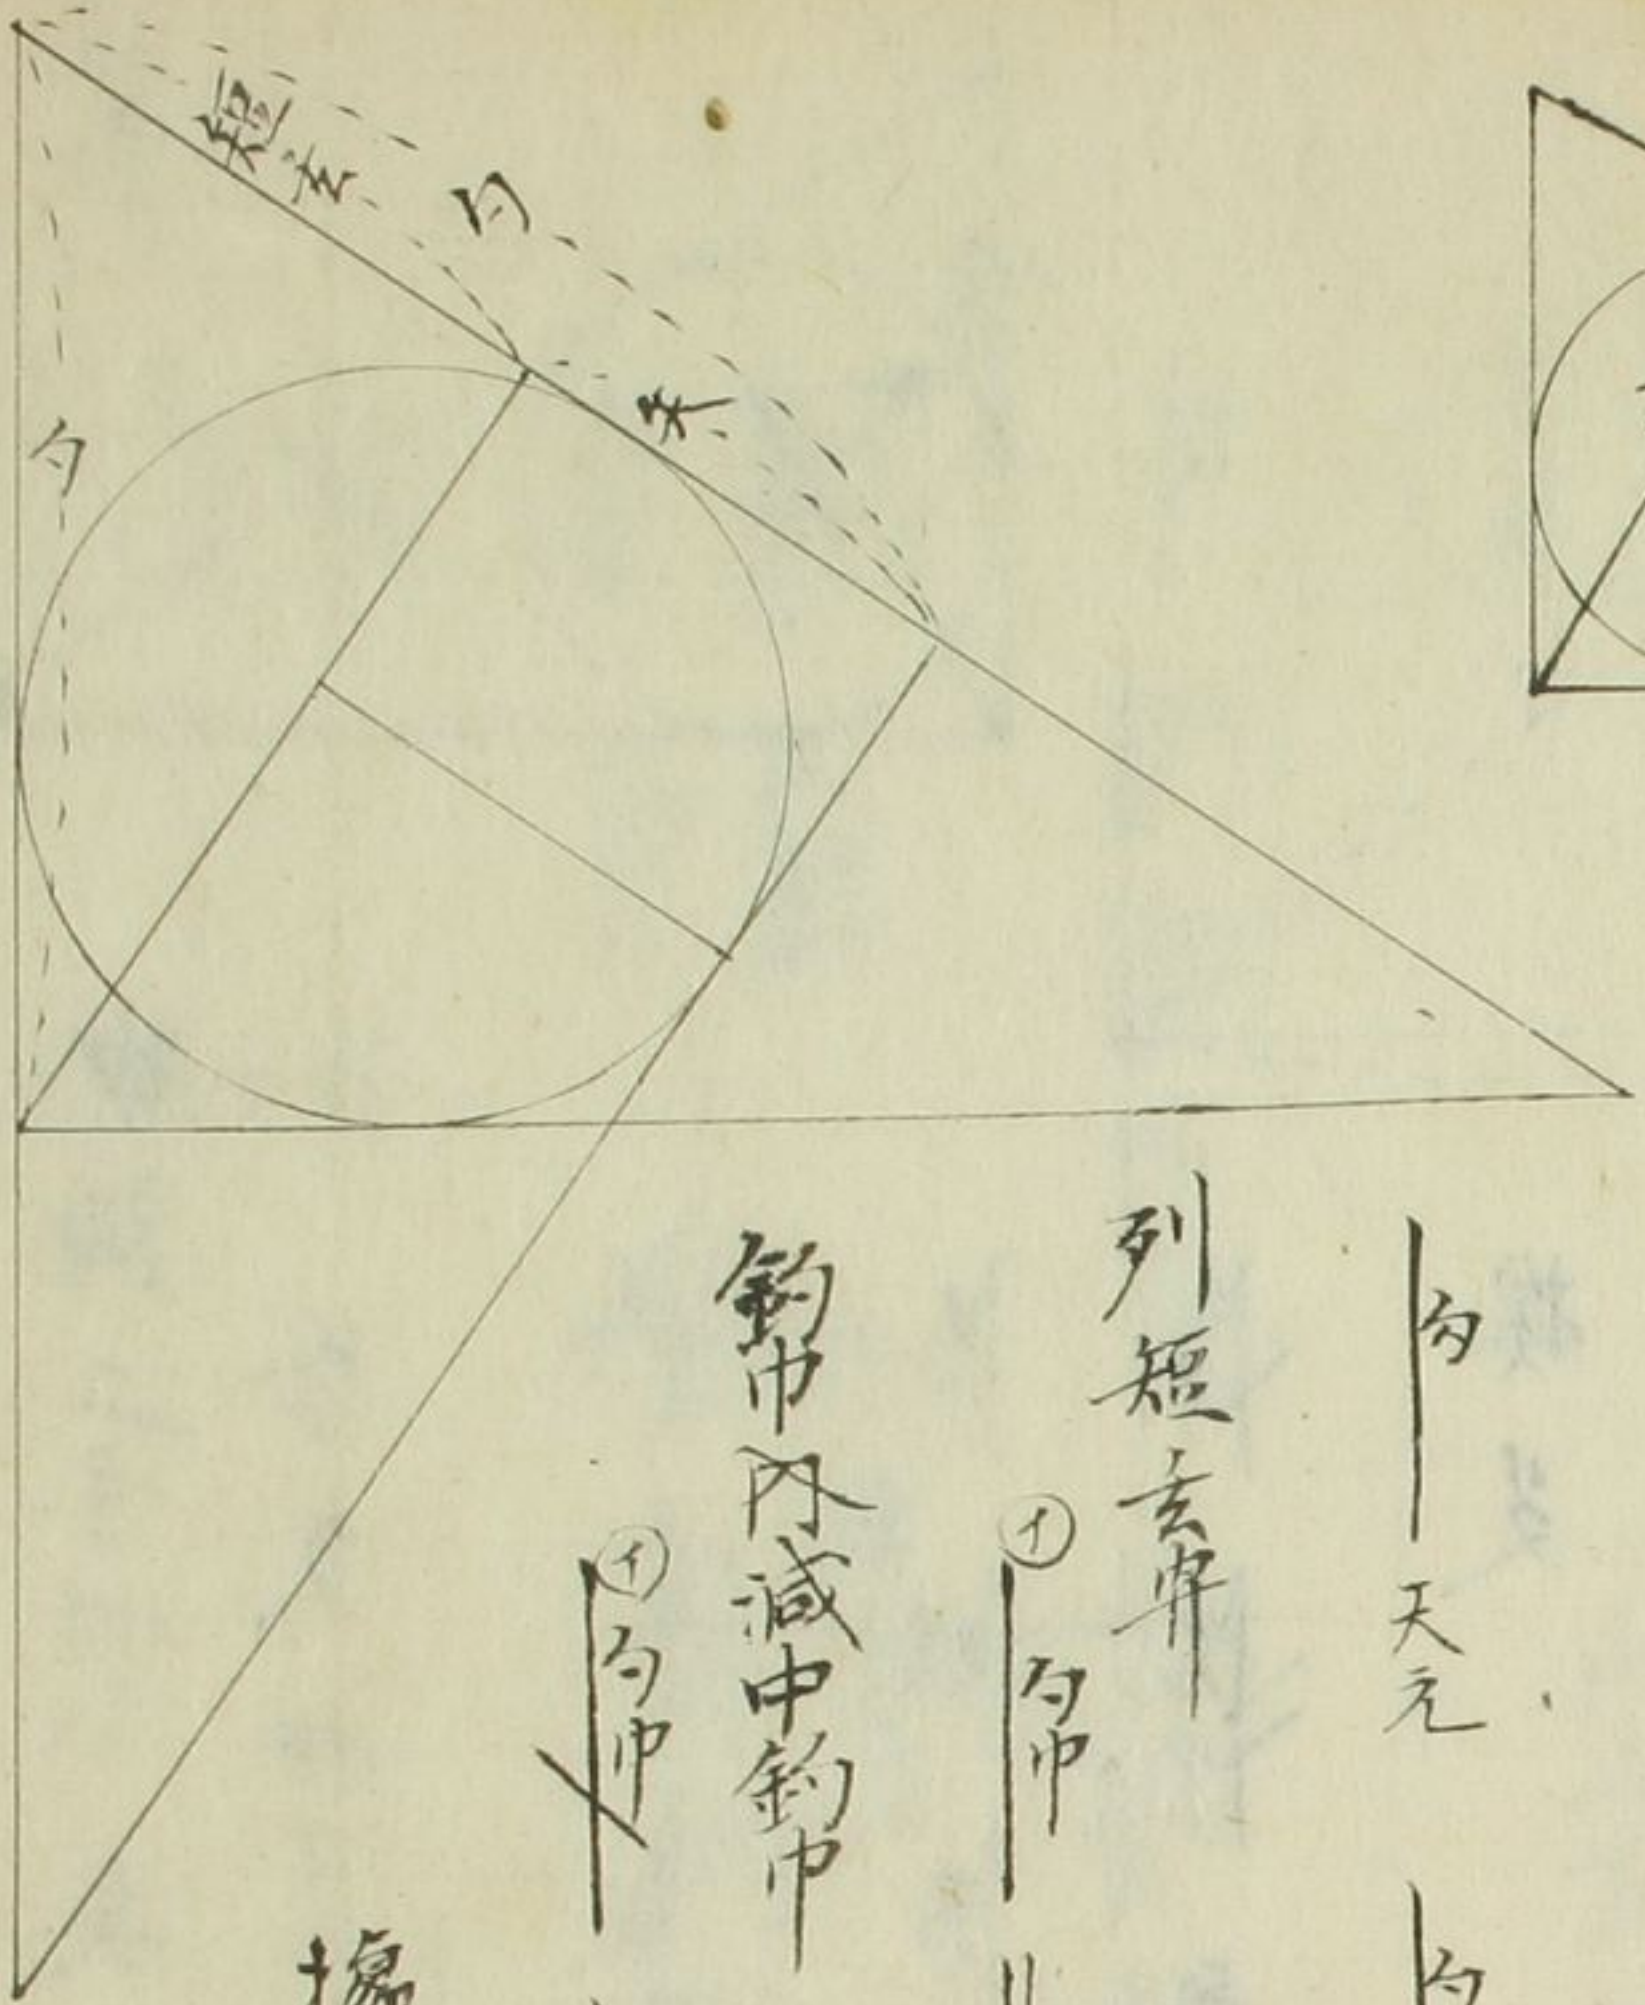 短玄
勾
天
勾
勾
天元
勾
列短玄巾
㋑
勾巾
鈎巾内減中鈎巾
㋑
勾巾